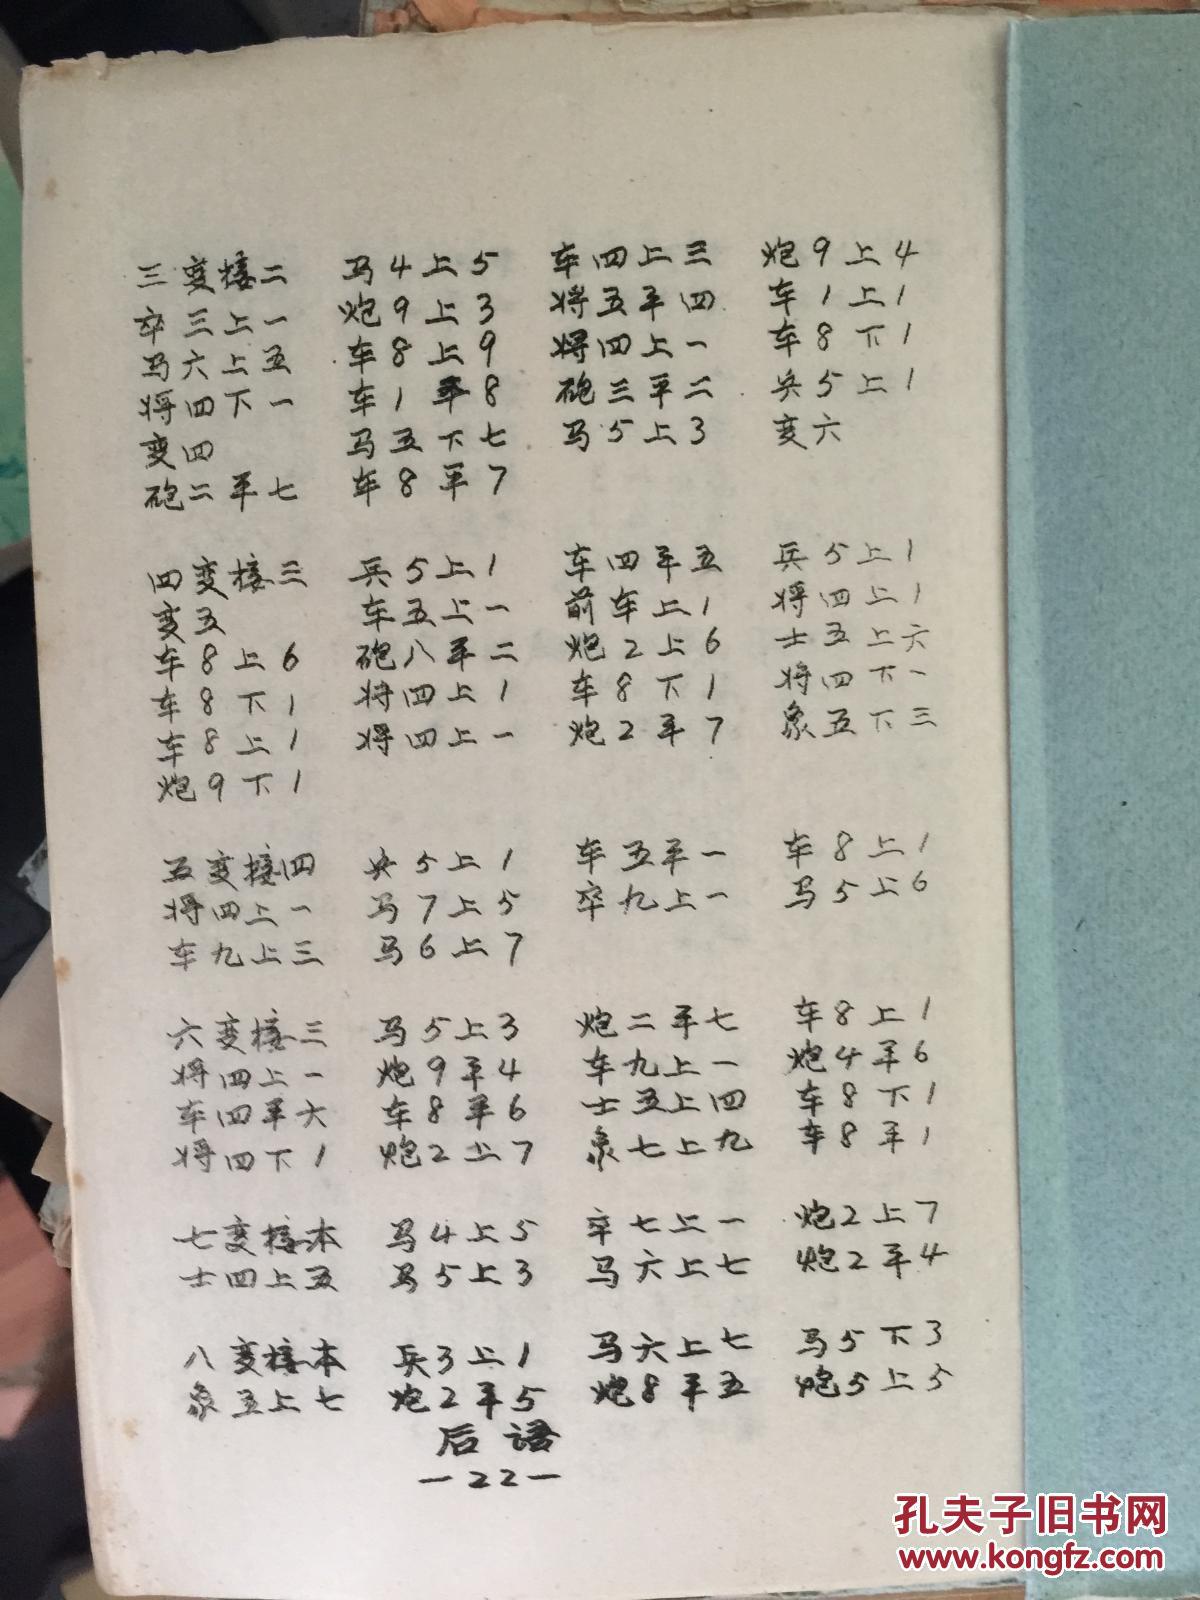 三变接二 马4上5 车四上三 炮9上4
卒三上一 炮9上3 将五平四 车1上1
马六上五 车8上9 将四上一 车8下1
将四下一 车1平8 砲三平二 兵5上1
变四 马五下七 马5上3 变六
砲二平七 车8平7
四变接三 兵5上1 车四平五 兵5上1
变五 车五上一 前车上1 将四上1
车8上6 砲八平二 炮2上6 士五上六
车8下1 将四上1 车8下1 将四下一
车8上1 将四上一 炮2平7 象五下三
炮9下1
五变接四 兵5上1 车五平一 车8上1
将四上一 马7上5 卒九上一 马5上6
车九上三 马6上7
六变接三 马5上3 炮二平七 车8上1
将四上一 炮9平4 车九上一 炮4平6
车四平六 车8平6 士五上四 车8下1
将四下1 炮2上7 象七上九 车8平1
七变接本 马4上5 卒七上一 炮2上7
士四上五 马5上3 马六上七 炮2平4
八变接本 兵3上1 马六上七 马5下3
象五上七 炮2平5 炮8平五 炮5上5
后语
—22—
孔夫子旧书网
www.kongfz.com